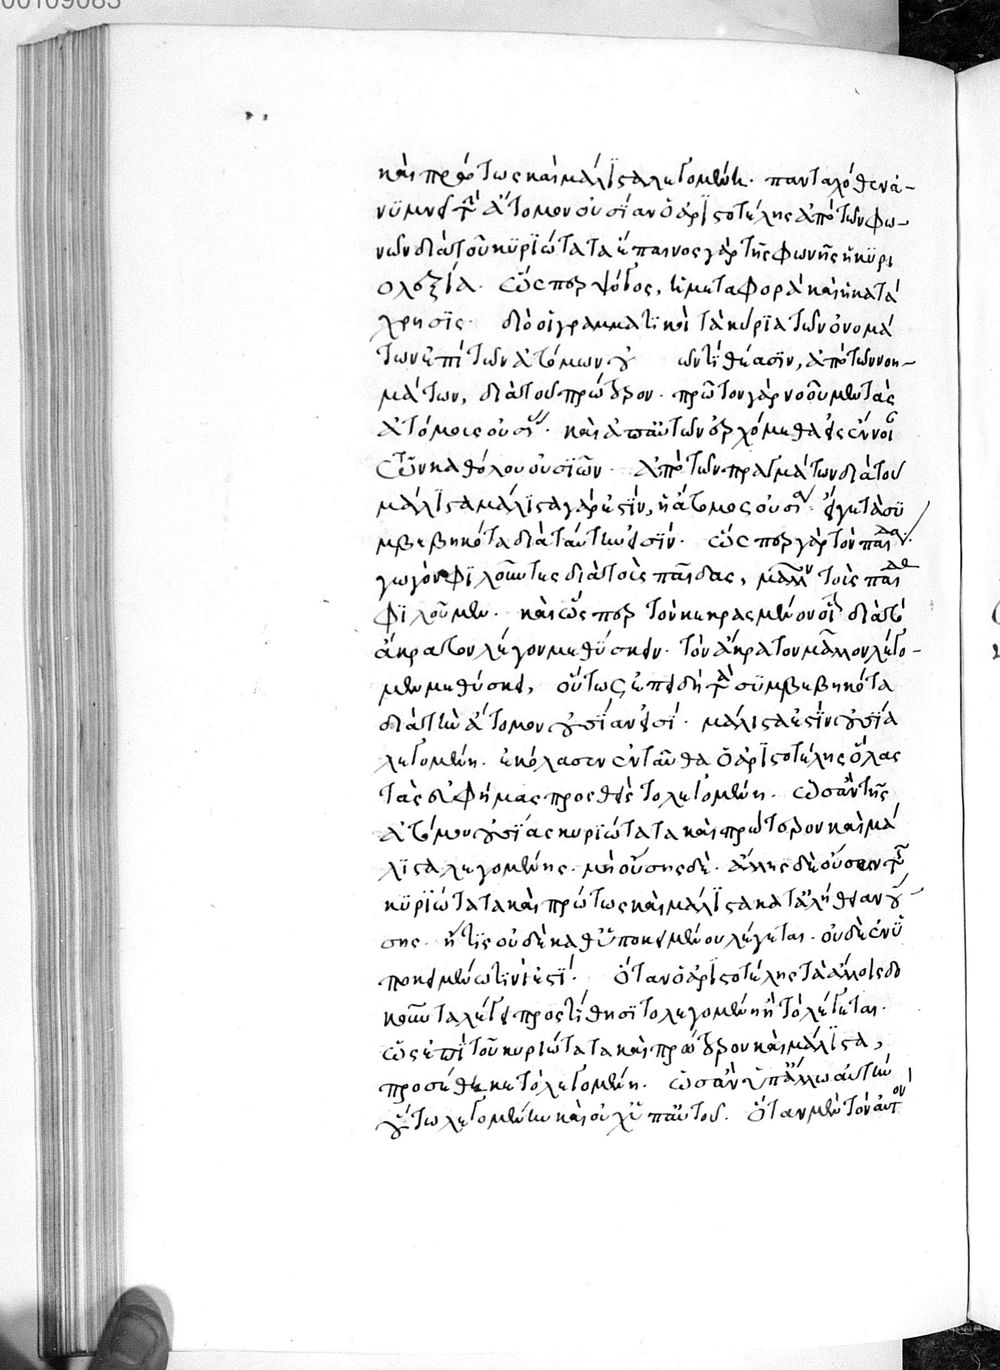 00109083
καὶ πρώτως καὶ μάλιστα λεγομένη. πανταχόθεν ὁ
ὕμνει τὴν ἄτομον οὐσίαν ὁ ἀριστοτέλης ἀπὸ τῶν φω-
νῶν διὰ τοῦ κυριώτατα ἔπαινος γὰρ τῆς φωνῆς ἡ κυρι
ολεξία. ὥσπερ ψόγος, ἡ μεταφορὰ καὶ ἡ κατά
χρησις. διὸ οἱ γραμματικοὶ τὰ κύρια τῶν ὀνομά
των ἐπὶ τῶν ἀτόμων τιθέασιν, ἀπὸ τῶν νοη-
μάτων, διὰ τοῦ πρώτως. πρῶτον γὰρ νοοῦμεν τὰς
ἀτόμοις οὐσίας. καὶ ἀπ' αὐτῶν ἐρχόμεθα εἰς ἔννοιαν
τῶν καθόλου οὐσιῶν. ἀπὸ τῶν πραγμάτων διὰ τοῦ
μάλιστα μάλιστα γάρ ἐστιν, ἡ ἄτομος οὐσία εἴγε τὰ συ
μβεβηκότα διὰ ταύτην εἰσίν. ὥσπερ γὰρ τὸν παιδα
γωγὸν φιλοῦντες διὰ τοὺς παῖδας, μᾶλλον τοὺς παῖδας
φιλοῦμεν. καὶ ὥσπερ τὸν κεκραμένον οἶνον διὰ τὸν
ἄκρατον λέγουμεθύσκειν. τὸν ἄκρατον μᾶλλον λέγο-
μεν μεθύσκειν, οὕτως ἐπειδὴ τὰ συμβεβηκότα
διὰ τὴν ἄτομον οὐσίαν εἰσί. μάλιστα ἐστὶν οὐσία
λεγομένη. ἐκόλασεν ἐνταῦθα ὁ ἀριστοτέλης ὅλας
τὰς εὐφήμας προσθεὶς το λεγομένη. ὡσὰν τῆς
ἀτόμου οὐσίας κυριώτατα καὶ πρώτως καὶ μά
λιστα λεγομένης. μὴ οὔσης δὲ. ἄλλης δὲ οὔσης τῆς
κυριώτατα καὶ πρώτως καὶ μάλιστα κατ' ἀλήθειαν οὔ
σης. ἥτις οὐδὲ καθ' ὑποκειμένου λέγεται. οὐδὲ ἐν ὑ
ποκειμένω τινί ἐστι. ὅταν ὁ ἀριστοτέλης τὰ ἄλλοις δο
κοῦντα λέγει προστίθησι το λεγομένη ἢ τὸ λέγεται.
ὡς ἐπὶ τοῦ κυριώτατα καὶ πρώτως καὶ μάλιστα,
προσέθηκε τὸ λεγομένη. ὡσὰν ὑπ' ἄλλω αὐτὴν
οὕτω λεγομένην καὶ οὐχ ὑπ' αὐτοῦ. ὅταν μὲν τὸν αὐτοῦ